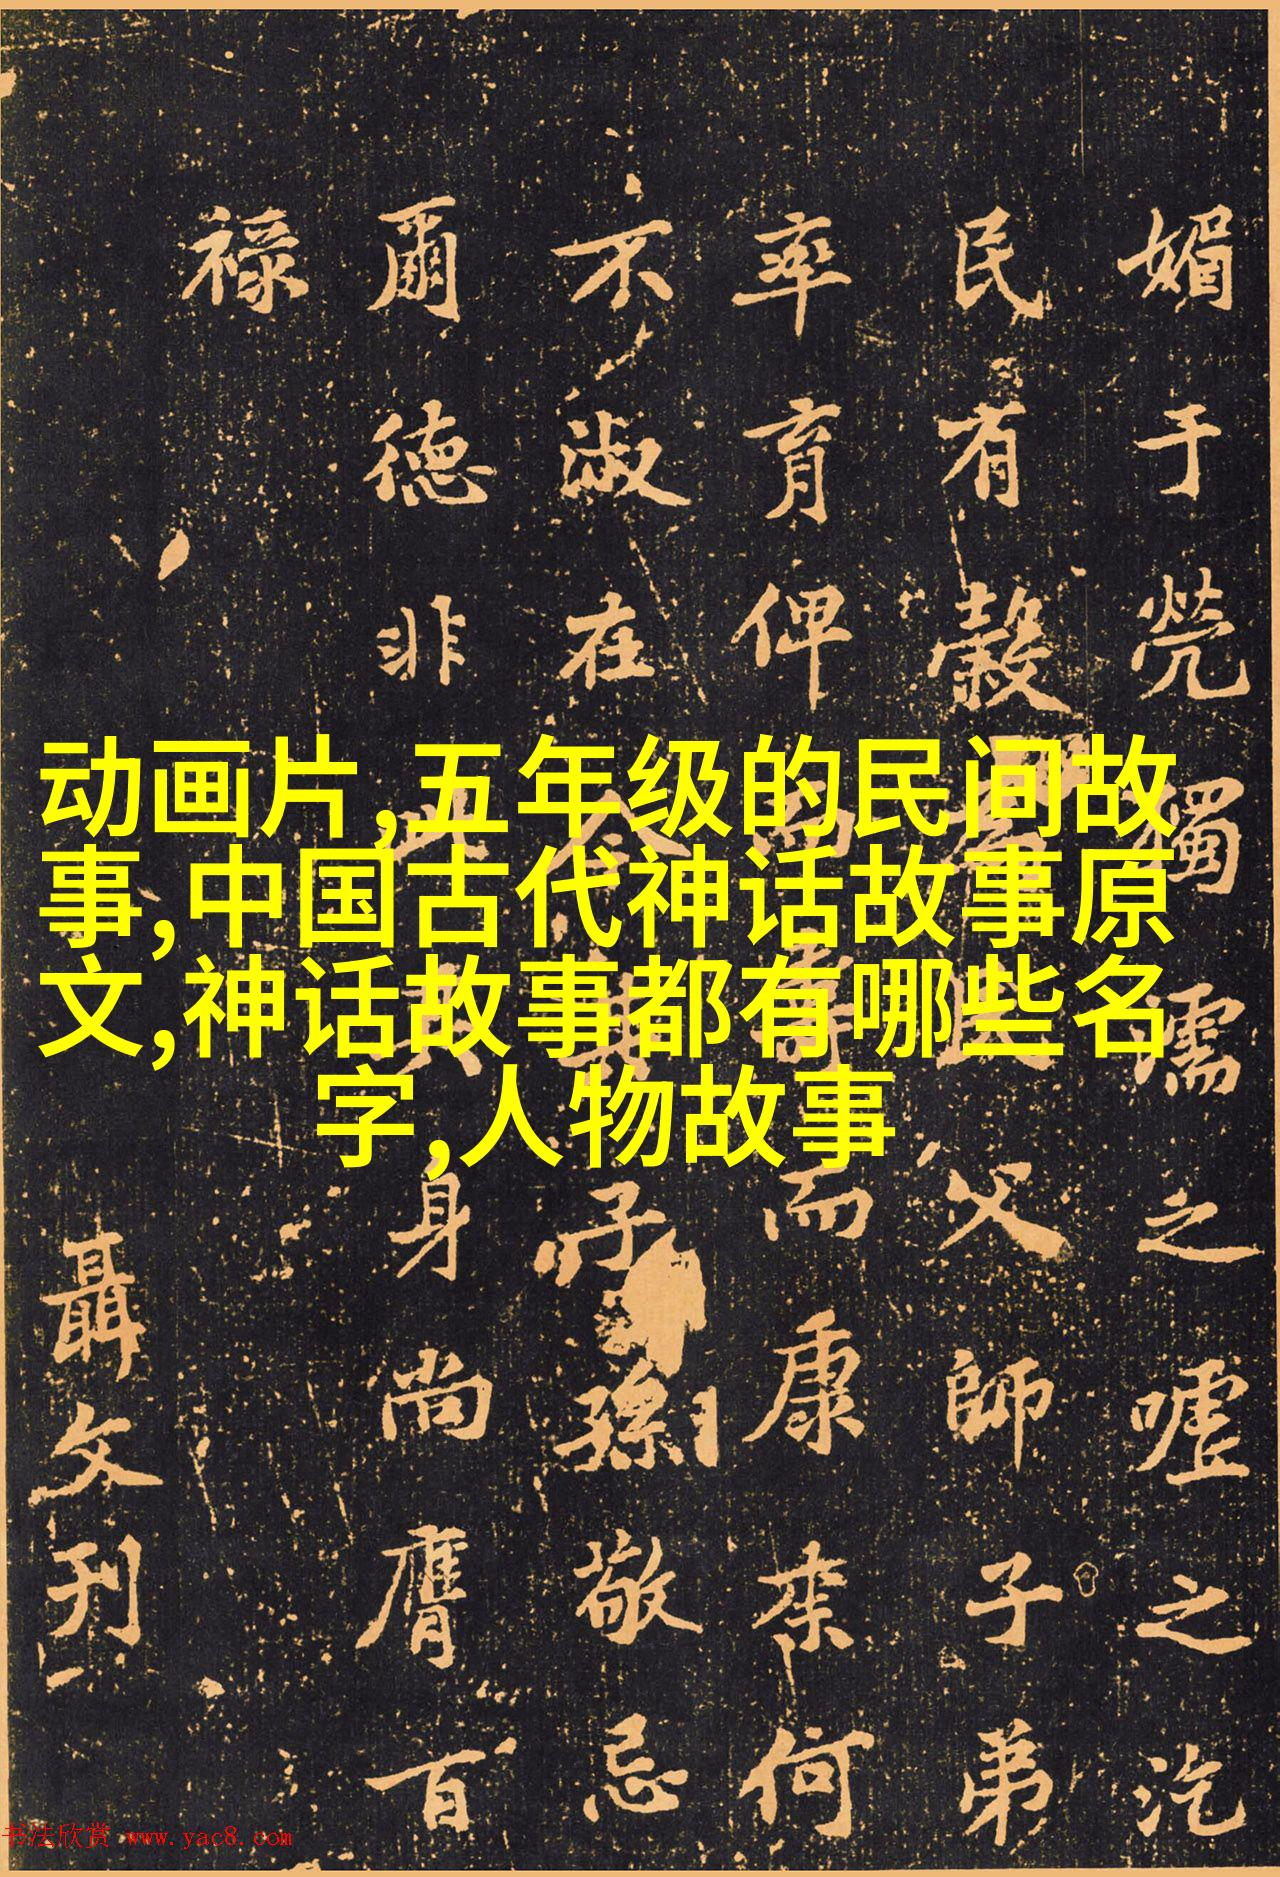 媚于煢獨濡之嘘之汔
民有穀民父師子弟
率育俾而壽而康来何
不淑在今子孫敬忌
爾德非此其身尚膺百
祿
聶文刊
动画片,五年级的民间故
事,中国古代神话故事原
文,神话故事都有哪些名
字,人物故事
书法欣赏 www.yac8.com